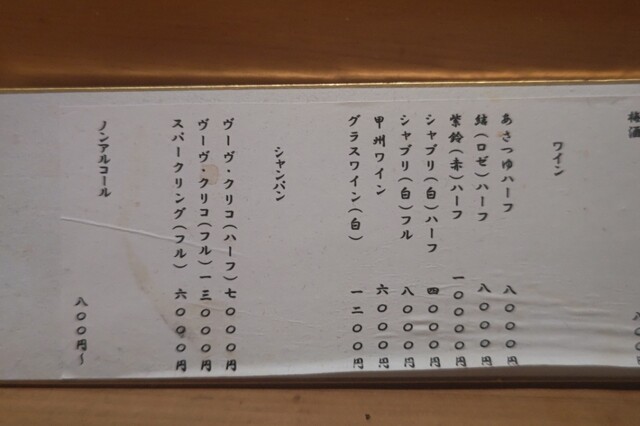 梅酒
八〇〇円
ワイン
あさつゆハーフ 八〇〇〇円
結(ロゼ)ハーフ 八〇〇〇円
紫鈴(赤)ハーフ 一〇〇〇〇円
シャブリ(白)ハーフ 四〇〇〇円
シャブリ(白)フル 八〇〇〇円
甲州ワイン 六〇〇〇円
グラスワイン(白) 一二〇〇円
シャンパン
ヴーヴ・クリコ(ハーフ) 七〇〇〇円
ヴーヴ・クリコ(フル) 一三〇〇〇円
スパークリング(フル) 六〇〇〇円
ノンアルコール
八〇〇円~